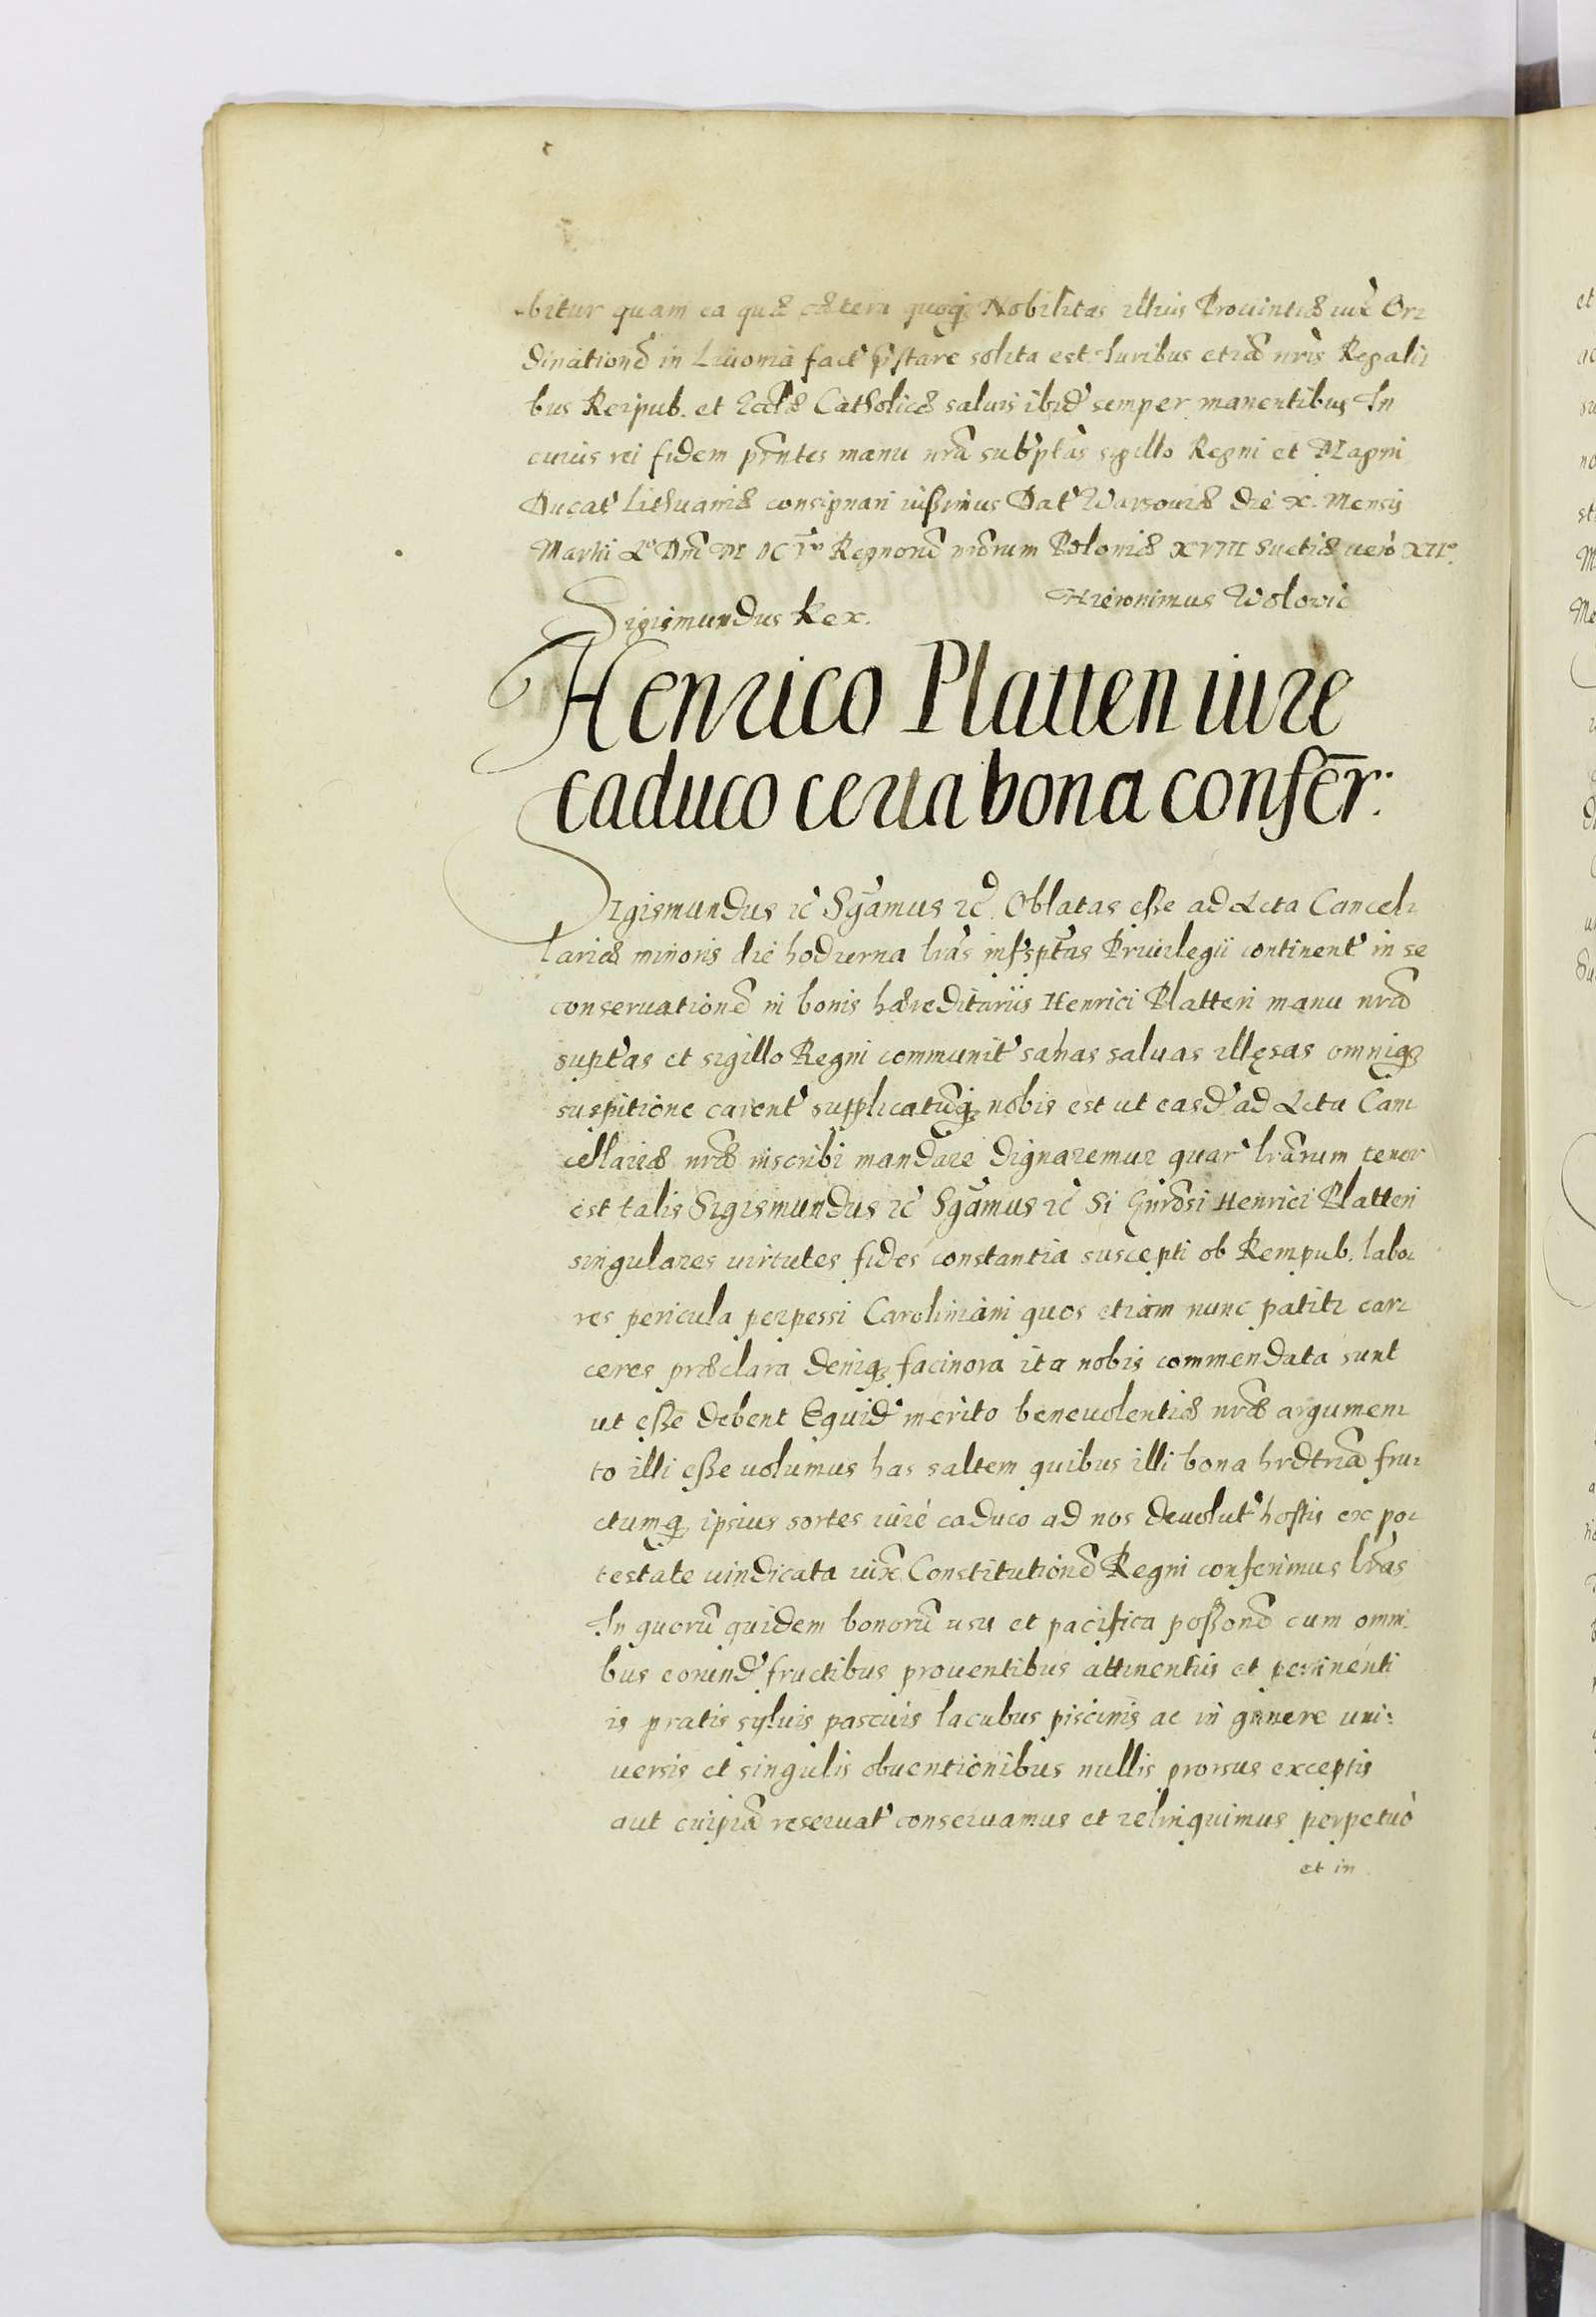 bitur quam ea quæ cætera quoq Nobilitas illius Prouintiæ iux Or-
dinationē in Liuonia fact pstare solita est. Iuribus etiā nris Regali-
bus Reipub. et Eccliæ Catholicæ saluis ibid semper manentibus In
cuius rei fidem pñtes manu nrã subptas sigillo Regni et Magni
Ducat Lithuaniæ consignari iussimus Dat Warsouiæ die X. Mensis
Martii Aº Dñi M DC Vto Regnorũ nrõrum Poloniæ XVIII Suetiæ uero XIIº.
Sigismundus Rex. Hieronimus Wolovic
Henrico Platteri iure
caduco certa bona confer̄.
Sigismundus zc Sgamus zc. Oblatas esse ad Acta Cancel-
lariæ minoris die hodierna lrãs infrsptas Priuilegii continent in se
conseruationē in bonis hæreditariis Henrici Platteri manu nrã
suptas et sigillo Regni communit sanas saluas illęsas omniq
suspitione carent supplicatūq nobis est ut easd ad Acta Can-
cellariæ nræ inscribi mandare dignaremur quar lrãrum tenor
est talis Sigismundus zc Sgamus zc Si Gnrõsi Henrici Platteri
singulares uirtutes fides constantia suscepti ob Rempub. labo-
res pericula perpessi Caroliniani quos etiam nunc patitr car-
ceres præclara deniq facinora ita nobis commendata sunt
ut esse debent Equid merito beneuolentiæ nræ argumen-
to illi esse uolumus has saltem quibus illi bona hrdtriã fru-
ctumq ipsius sortes iure caduco ad nos deuolut hostis ex po-
testate uindicata iux Constitutionē Regni conferimus lrãs
In quorũ quidem bonorũ usu et pacifica possonē cum omni-
bus eorund fructibus prouentibus attinentiis et pertinenti
is pratis syluis pascuis lacubus piscinis ac in genere uni-
uersis et singulis obuentionibus nullis prorsus exceptis
aut cuipiã reseruat conseruamus et relinquimus perpetuò
et in